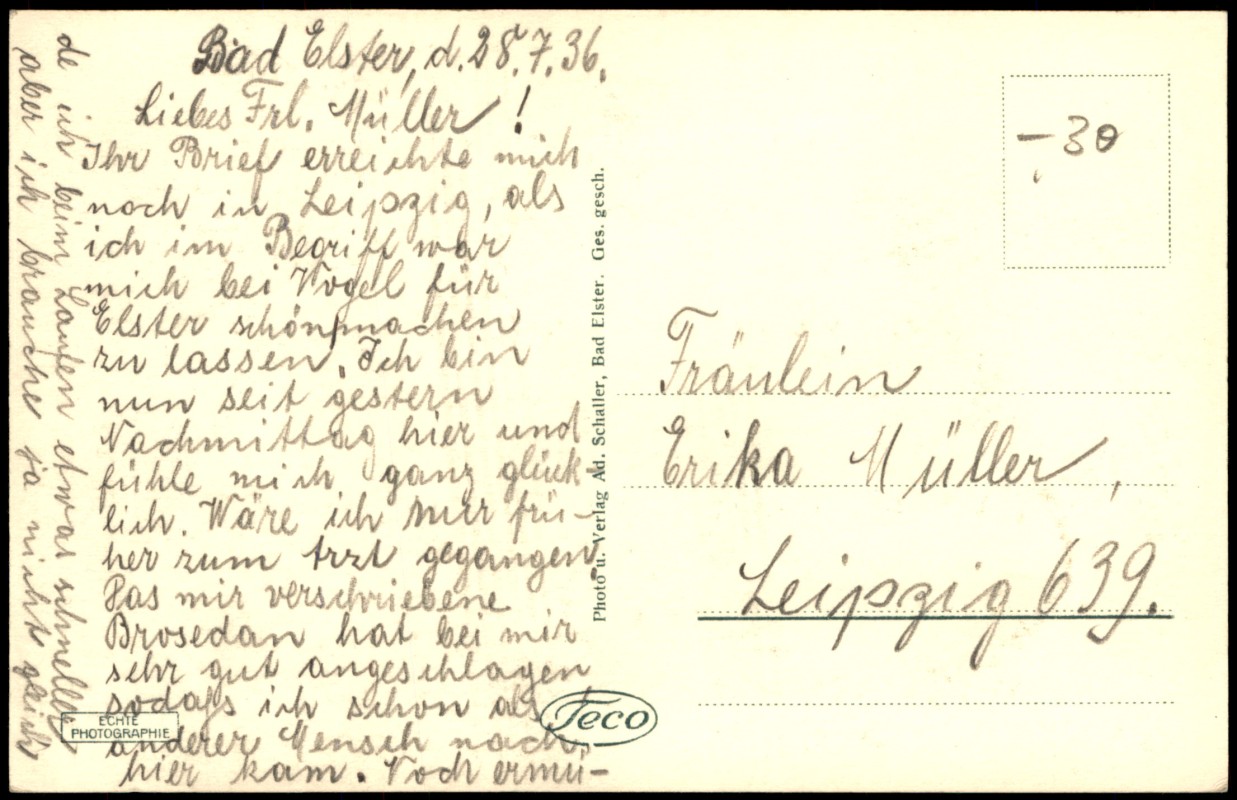 Bad Elster, d. 28.7.36.
Liebes Frl. Müller!
Ihr Brief erreichte mich
noch in Leipzig, als
ich im Begriff war
mich bei Vogel für
Elster schönmachen
zu lassen. Ich bin
nun seit gestern
Nachmittag hier und
fühle mich ganz glück-
lich. Wäre ich nur frü-
her zum Arzt gegangen.
Das mir verschriebene
Brosedan hat bei mir
sehr gut angeschlagen
sodaß ich schon als
anderer Mensch nach
hier kam. Noch ermü-
de ich beim Laufen etwas schneller
aber ich brauche ja nicht gleich
ECHTE
PHOTOGRAPHIE
Photo u. Verlag Ad. Schaller, Bad Elster. Ges. gesch.
Teco
-.30
Fräulein
Erika Müller,
Leipzig 639.